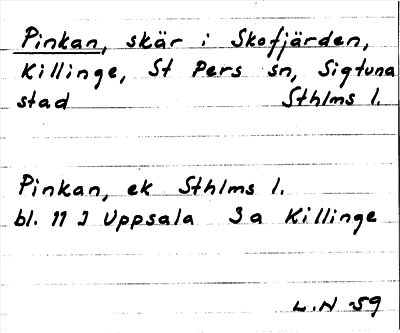 Pinkan, skär i Skofjärden,
Killinge, St Pers sn, Sigtuna
stad Sthlms l.
Pinkan, ek Sthlms l.
bl. 11 I Uppsala 3a Killinge
L.N 59